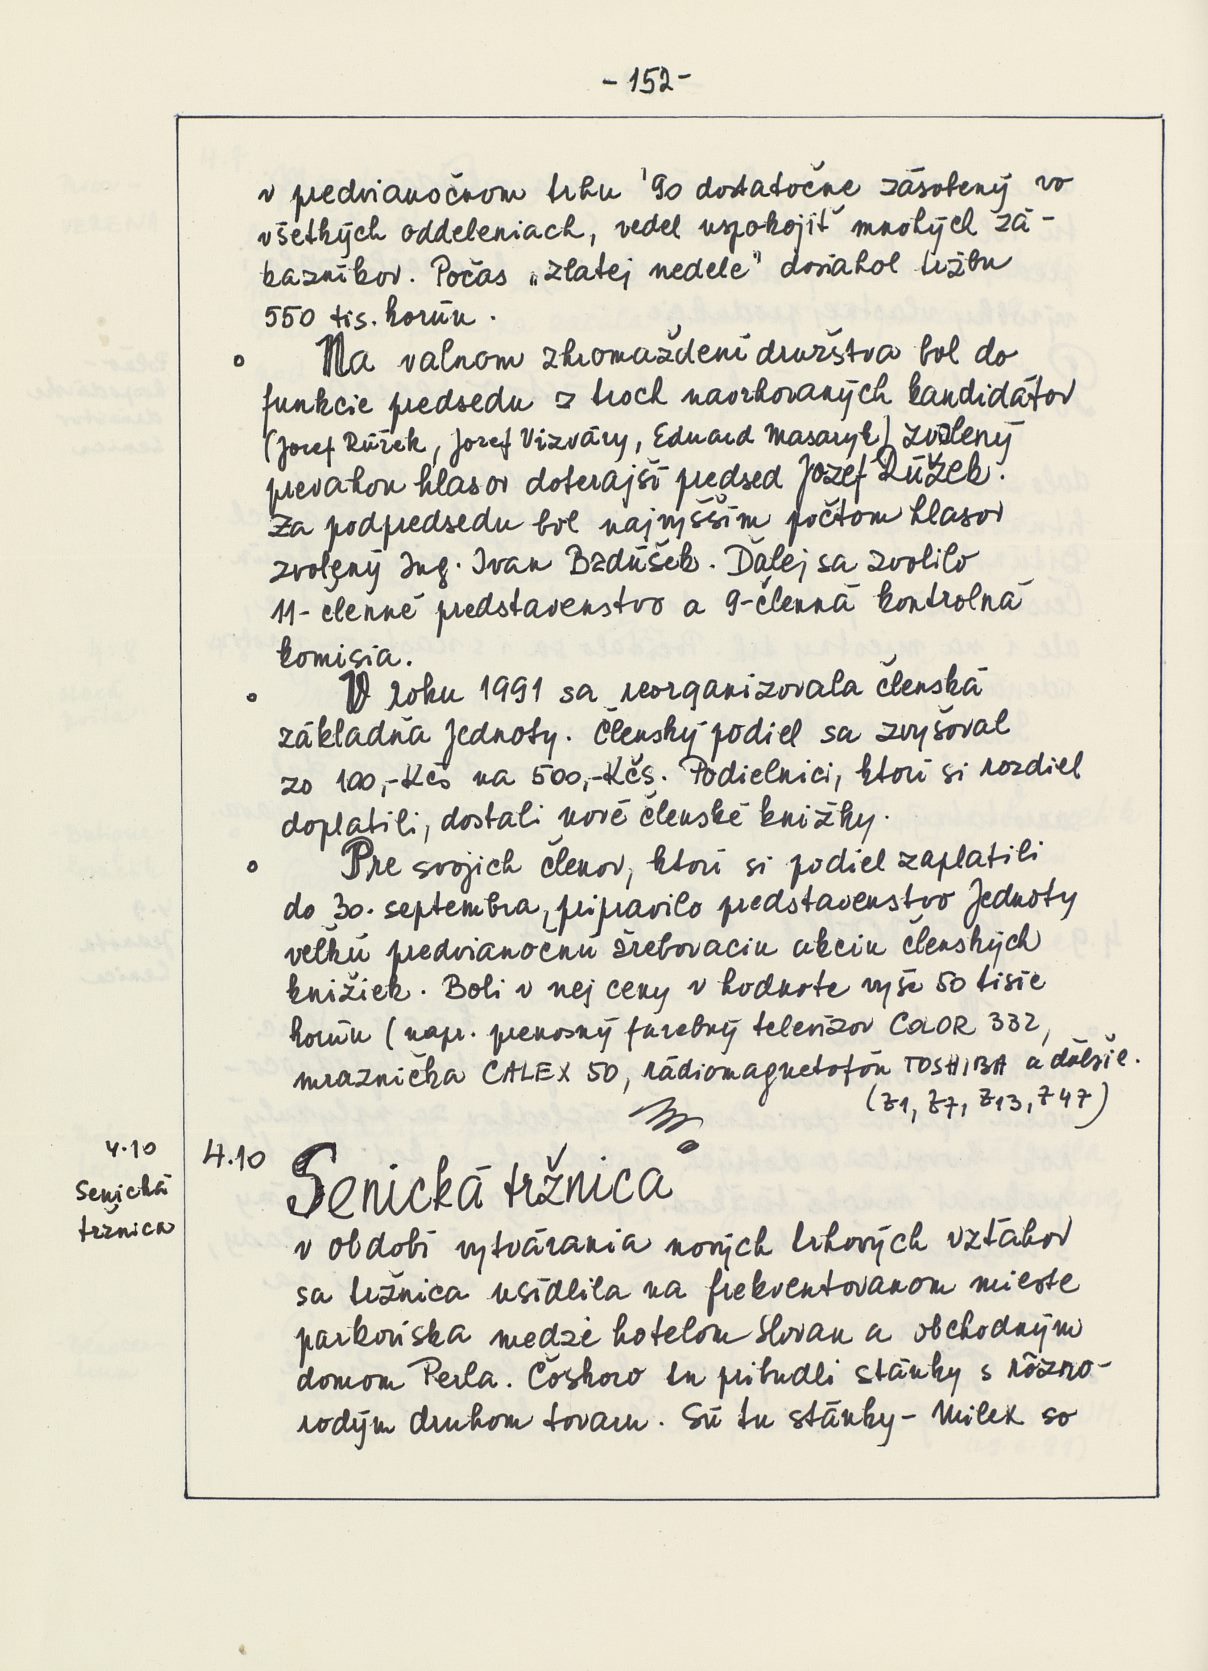 - 152 -
v predvianočnom trhu '90 dostatočne zásobený vo
všetkých oddeleniach, vedel uspokojiť mnohých zá-
kazníkov. Počas „zlatej nedele" dosiahol tržbu
550 tis. korún.
o Na valnom zhromaždení družstva bol do
funkcie predsedu z troch navrhovaných kandidátov
(Jozef Růžek, Jozef Vizváry, Eduard Masaryk) zvolený
prevahou hlasov doterajší predsed Jozef Růžek.
Za podpredsedu bol najvyšším počtom hlasov
zvolený Ing. Ivan Bzdúšek. Ďalej sa zvolilo
11-členné predstavenstvo a 9-členná kontrolná
komisia.
o V roku 1991 sa reorganizovala členská
základňa Jednoty. Členský podiel sa zvyšoval
zo 100,-Kčs na 500,-Kčs. Podielnici, ktorí si rozdiel
doplatili, dostali nové členské knižky.
o Pre svojich členov, ktorí si podiel zaplatili
do 30. septembra, pripravilo predstavenstvo Jednoty
veľkú predvianočnú žrebovaciu akciu členských
knižiek. Boli v nej ceny v hodnote vyše 50 tisíc
korún (napr. prenosný farebný televízor COLOR 332,
mraznička CALEX 50, rádiomagnetofón TOSHIBA a ďalšie.
(Z1, Z7, Z13, Z47)
4.10
Senická
tržnica
4.10 Senická tržnica
v období vytvárania nových trhových vzťahov
sa tržnica usídlila na frekventovanom mieste
parkoviska medzi hotelom Slovan a obchodným
domom Perla. Čoskoro tu pribudli stánky s rôzno-
rodým druhom tovaru. Sú tu stánky - Milex so